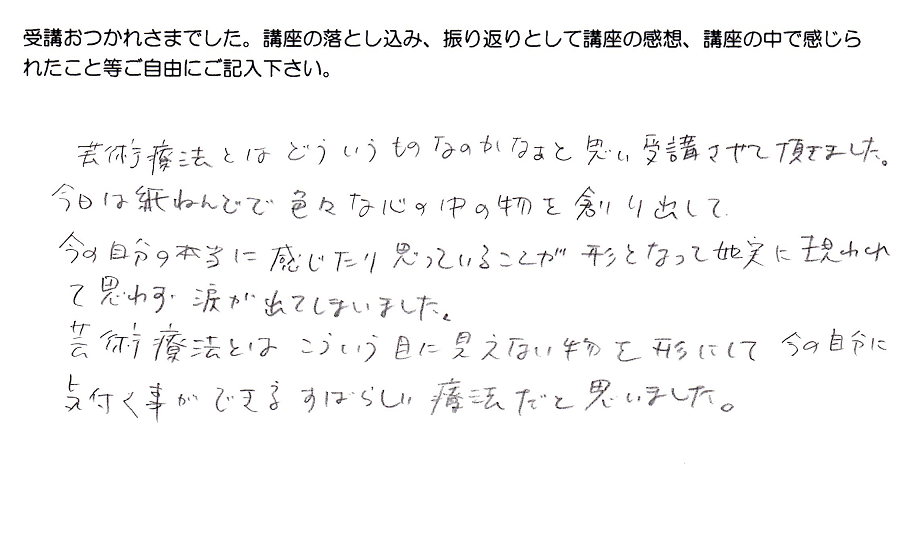 受講おつかれさまでした。講座の落とし込み、振り返りとして講座の感想、講座の中で感じら
れたこと等ご自由にご記入下さい。
芸術療法とはどういうものなのかなぁと思い受講させて頂きました。
今日は紙ねんどで色々な心の中の物を創り出して
今の自分の本当に感じたり思っていることが形となって如実に現われ
て思わず涙が出てしまいました。
芸術療法とはこういう目に見えない物を形にして今の自分に
気付く事ができるすばらしい療法だと思いました。